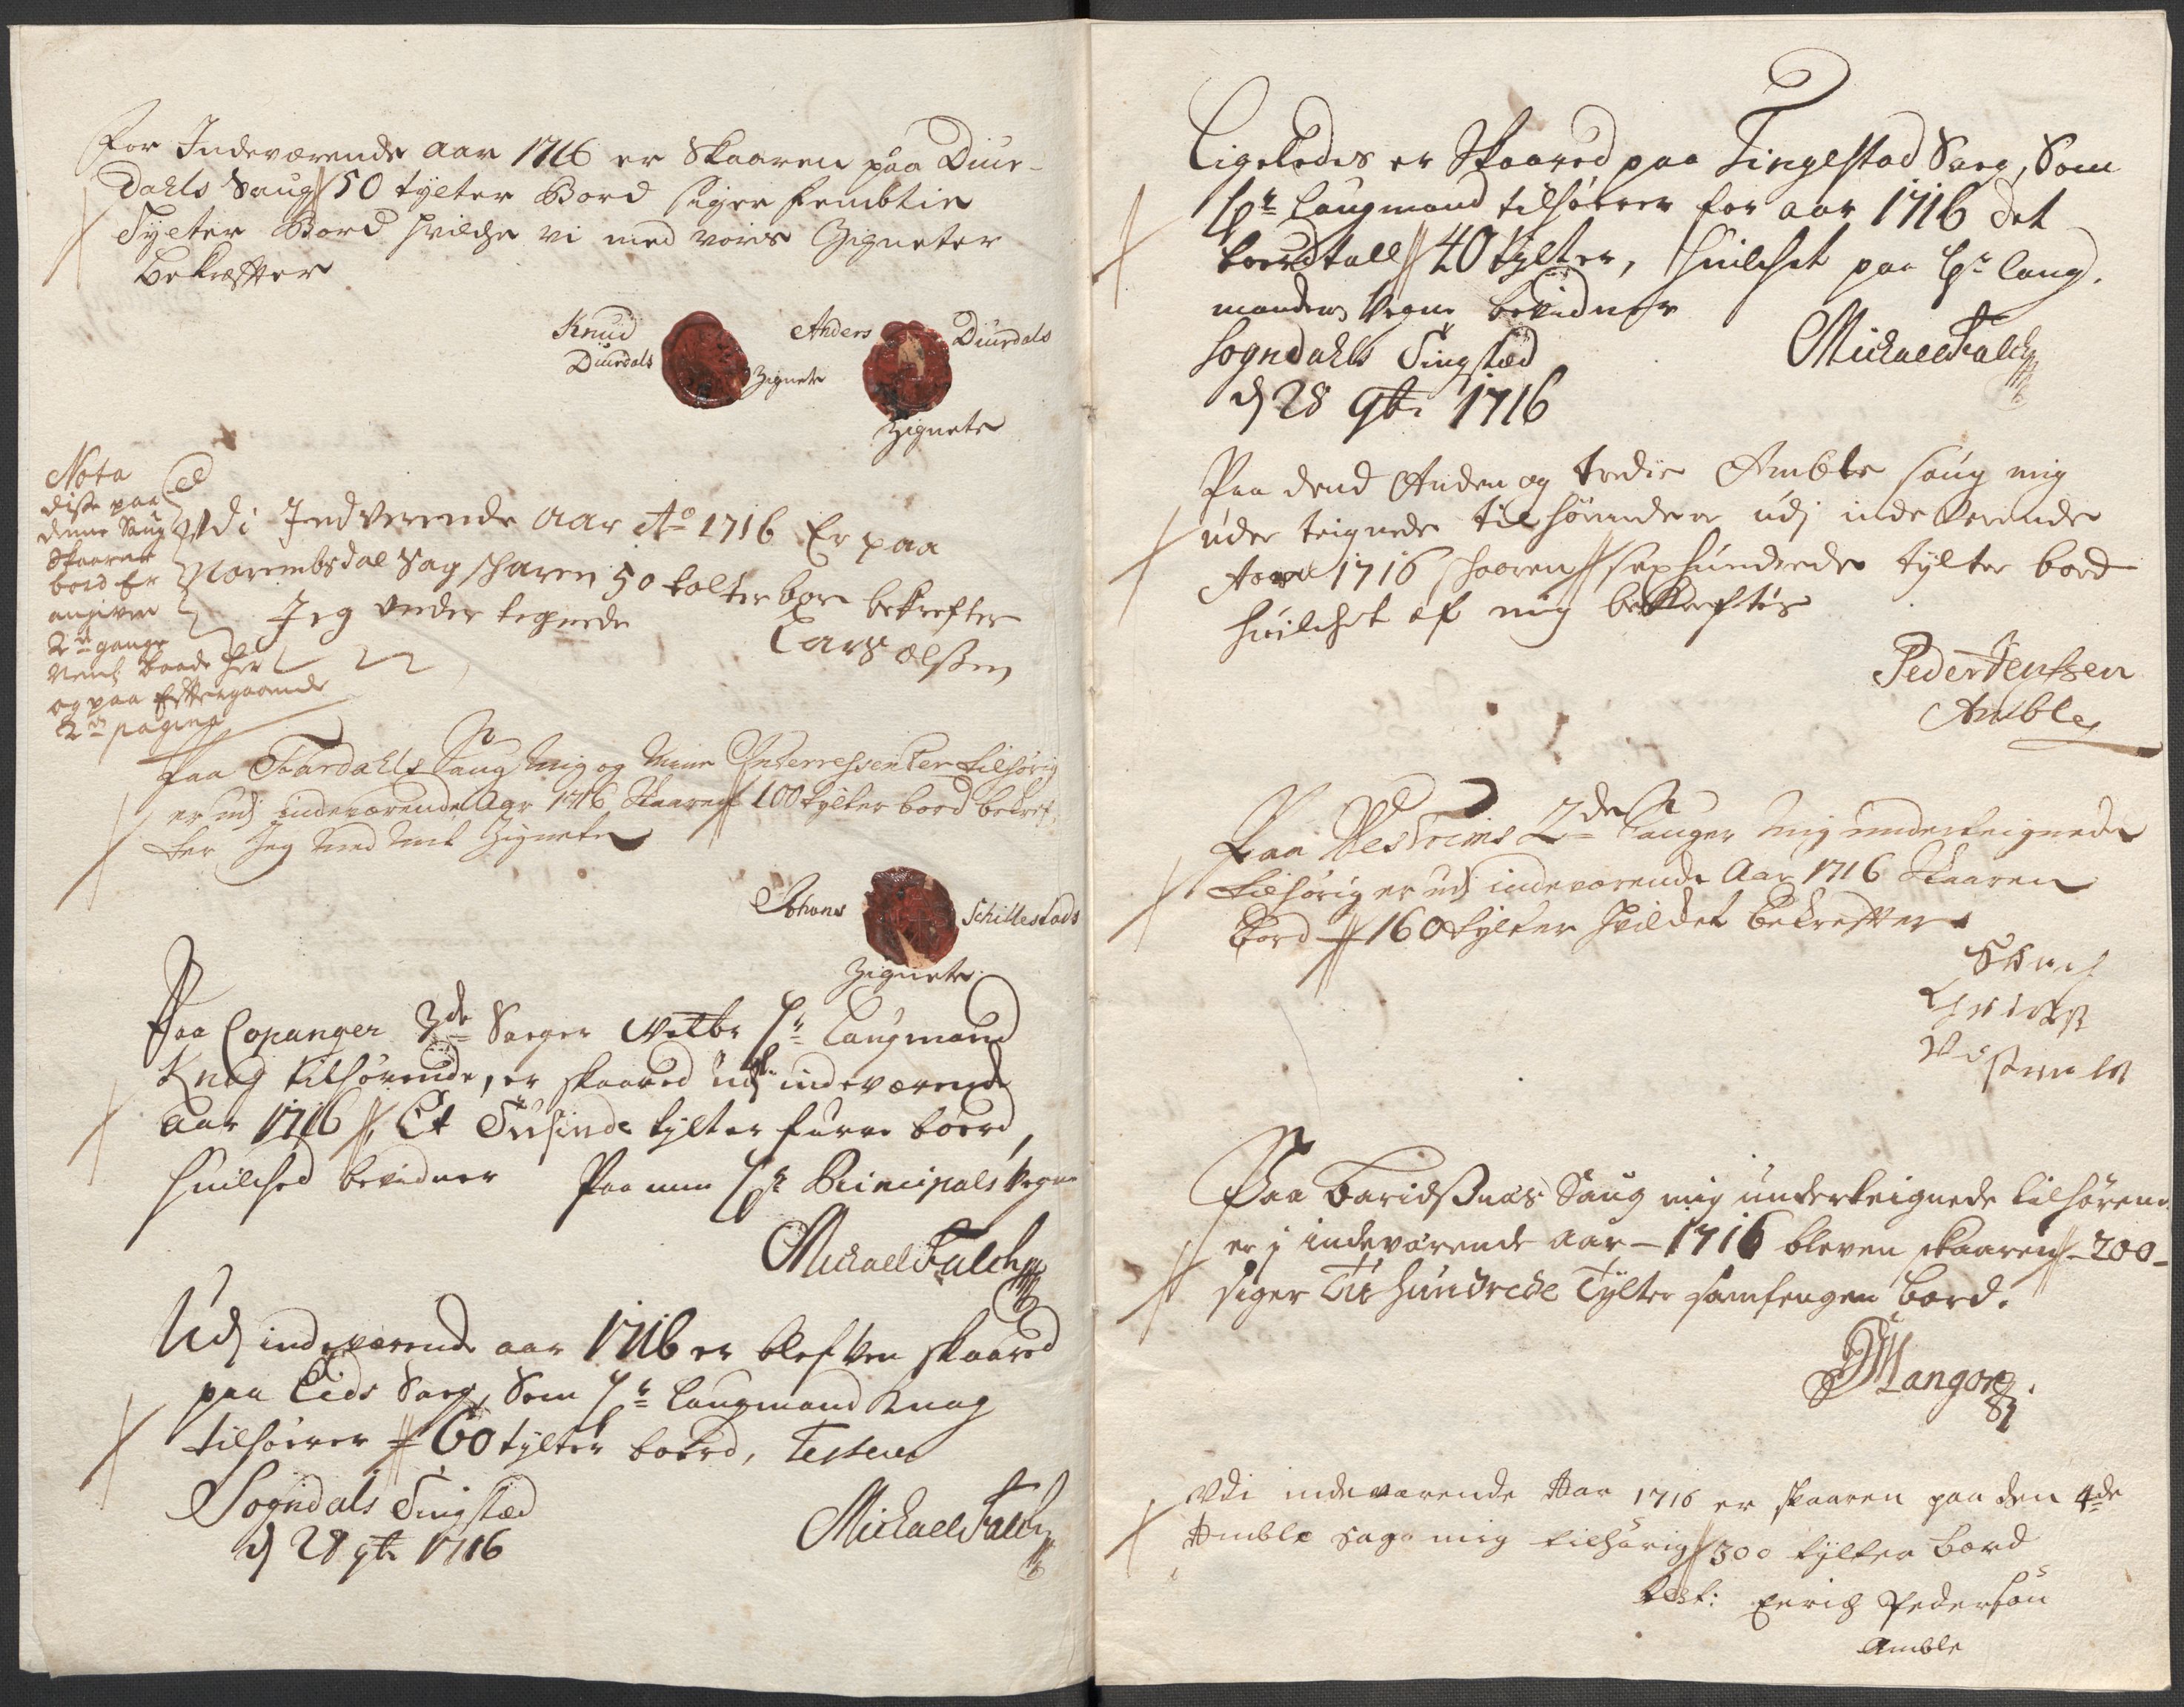 For Indeværende aar 1716 er Skaaren paa Diur-
dahls Saug 50 tylter Bord siger fembtie
Tylter Bord hvilche vi med voris Zigneter
bekræfter
Knud Diurdals Zignete
Anders Diurdals Zignete
Nota
disse paa
denne Saug
Skaarne
bord Er
angiven
2de gange
Nemb baade her
og paa Efterfølgende
2de pagina
Udi Indverende aar Ao 1716 Er paa
Norembsdal Sag skaren 50 tolter bor bekrefter
Jeg under tegnede
Lars olssen
Paa Fardahls Saug Mig og Mine Interressenter tilhørig
er udj indeværende Aar 1716 Skaaren 100 tylter bord bekref-
ter Jeg med mit Zignete
Johans Schillestads
Zignete
Paa Copanger 3de Sauger Velbr Hr Laugmand
Knag tilhørende, er skaared udj indeværende
aar 1716, Et Tusinde tylter furre boerd,
huilched bevidner Paa min Hr Principals Vegne
Michael Falch
Udj indeværende aar 1716 er blefven skaared
paa Eids Saug, Som Hr Laugmand Knag
tilhører 60 tylter boerd, Testerer
Sogndals Tingsted
d 28 9br 1716
Michael Falch
Ligeledes er Skaared paa Tingelstad Saug, Som
Hr Laugmand tilhører for aar 1716 det
boerdtall 40 tylter, huilchet paa Hr Laug-
mandens Vegne bevidner
Sogndahls Tingsted
d 28 9br 1716
Michael Falch
Paa dend Anden og tredie Amble saug mig
under teignede tilhørende er udj indeverende
Aar 1716 skaaren sexhundrede tylter bord
huilchet af mig bekreftes
Peder Jenssen
Amble
Paa Vestreims 2de Sauger Mig underteignede
tilhørig er udj indeværende Aar 1716 Skaaren
Bord 160 tylter hvilchet bekrefter
Paa Baridsnæs Saug mig underteignede tilhørend
er i indeværende aar - 1716 bleven skaaren - 200 -
siger Tu hundrede Tylter samfengen bord.
Mangor
Udi indeværende Aar 1716 er skaaren paa den 4de
Amble sag mig tilhørig 300 tylter bord
test: Eerich Pedersøn
Amble